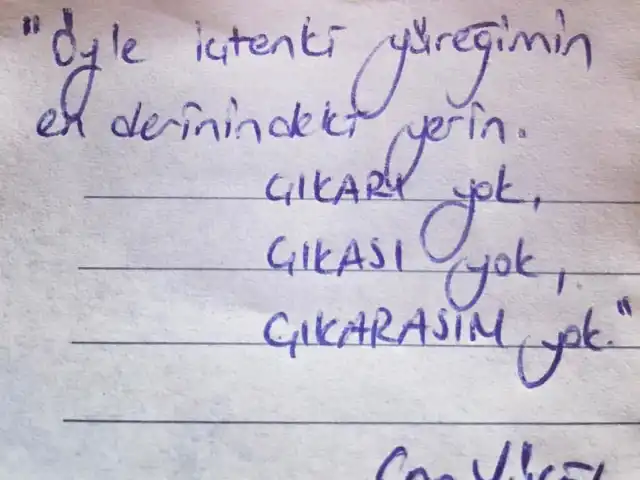 "Öyle içtenki yüreğimin
en derinindeki yerin.
ÇIKARI yok,
ÇIKASI yok,
ÇIKARASIM yok."
Can Yücel